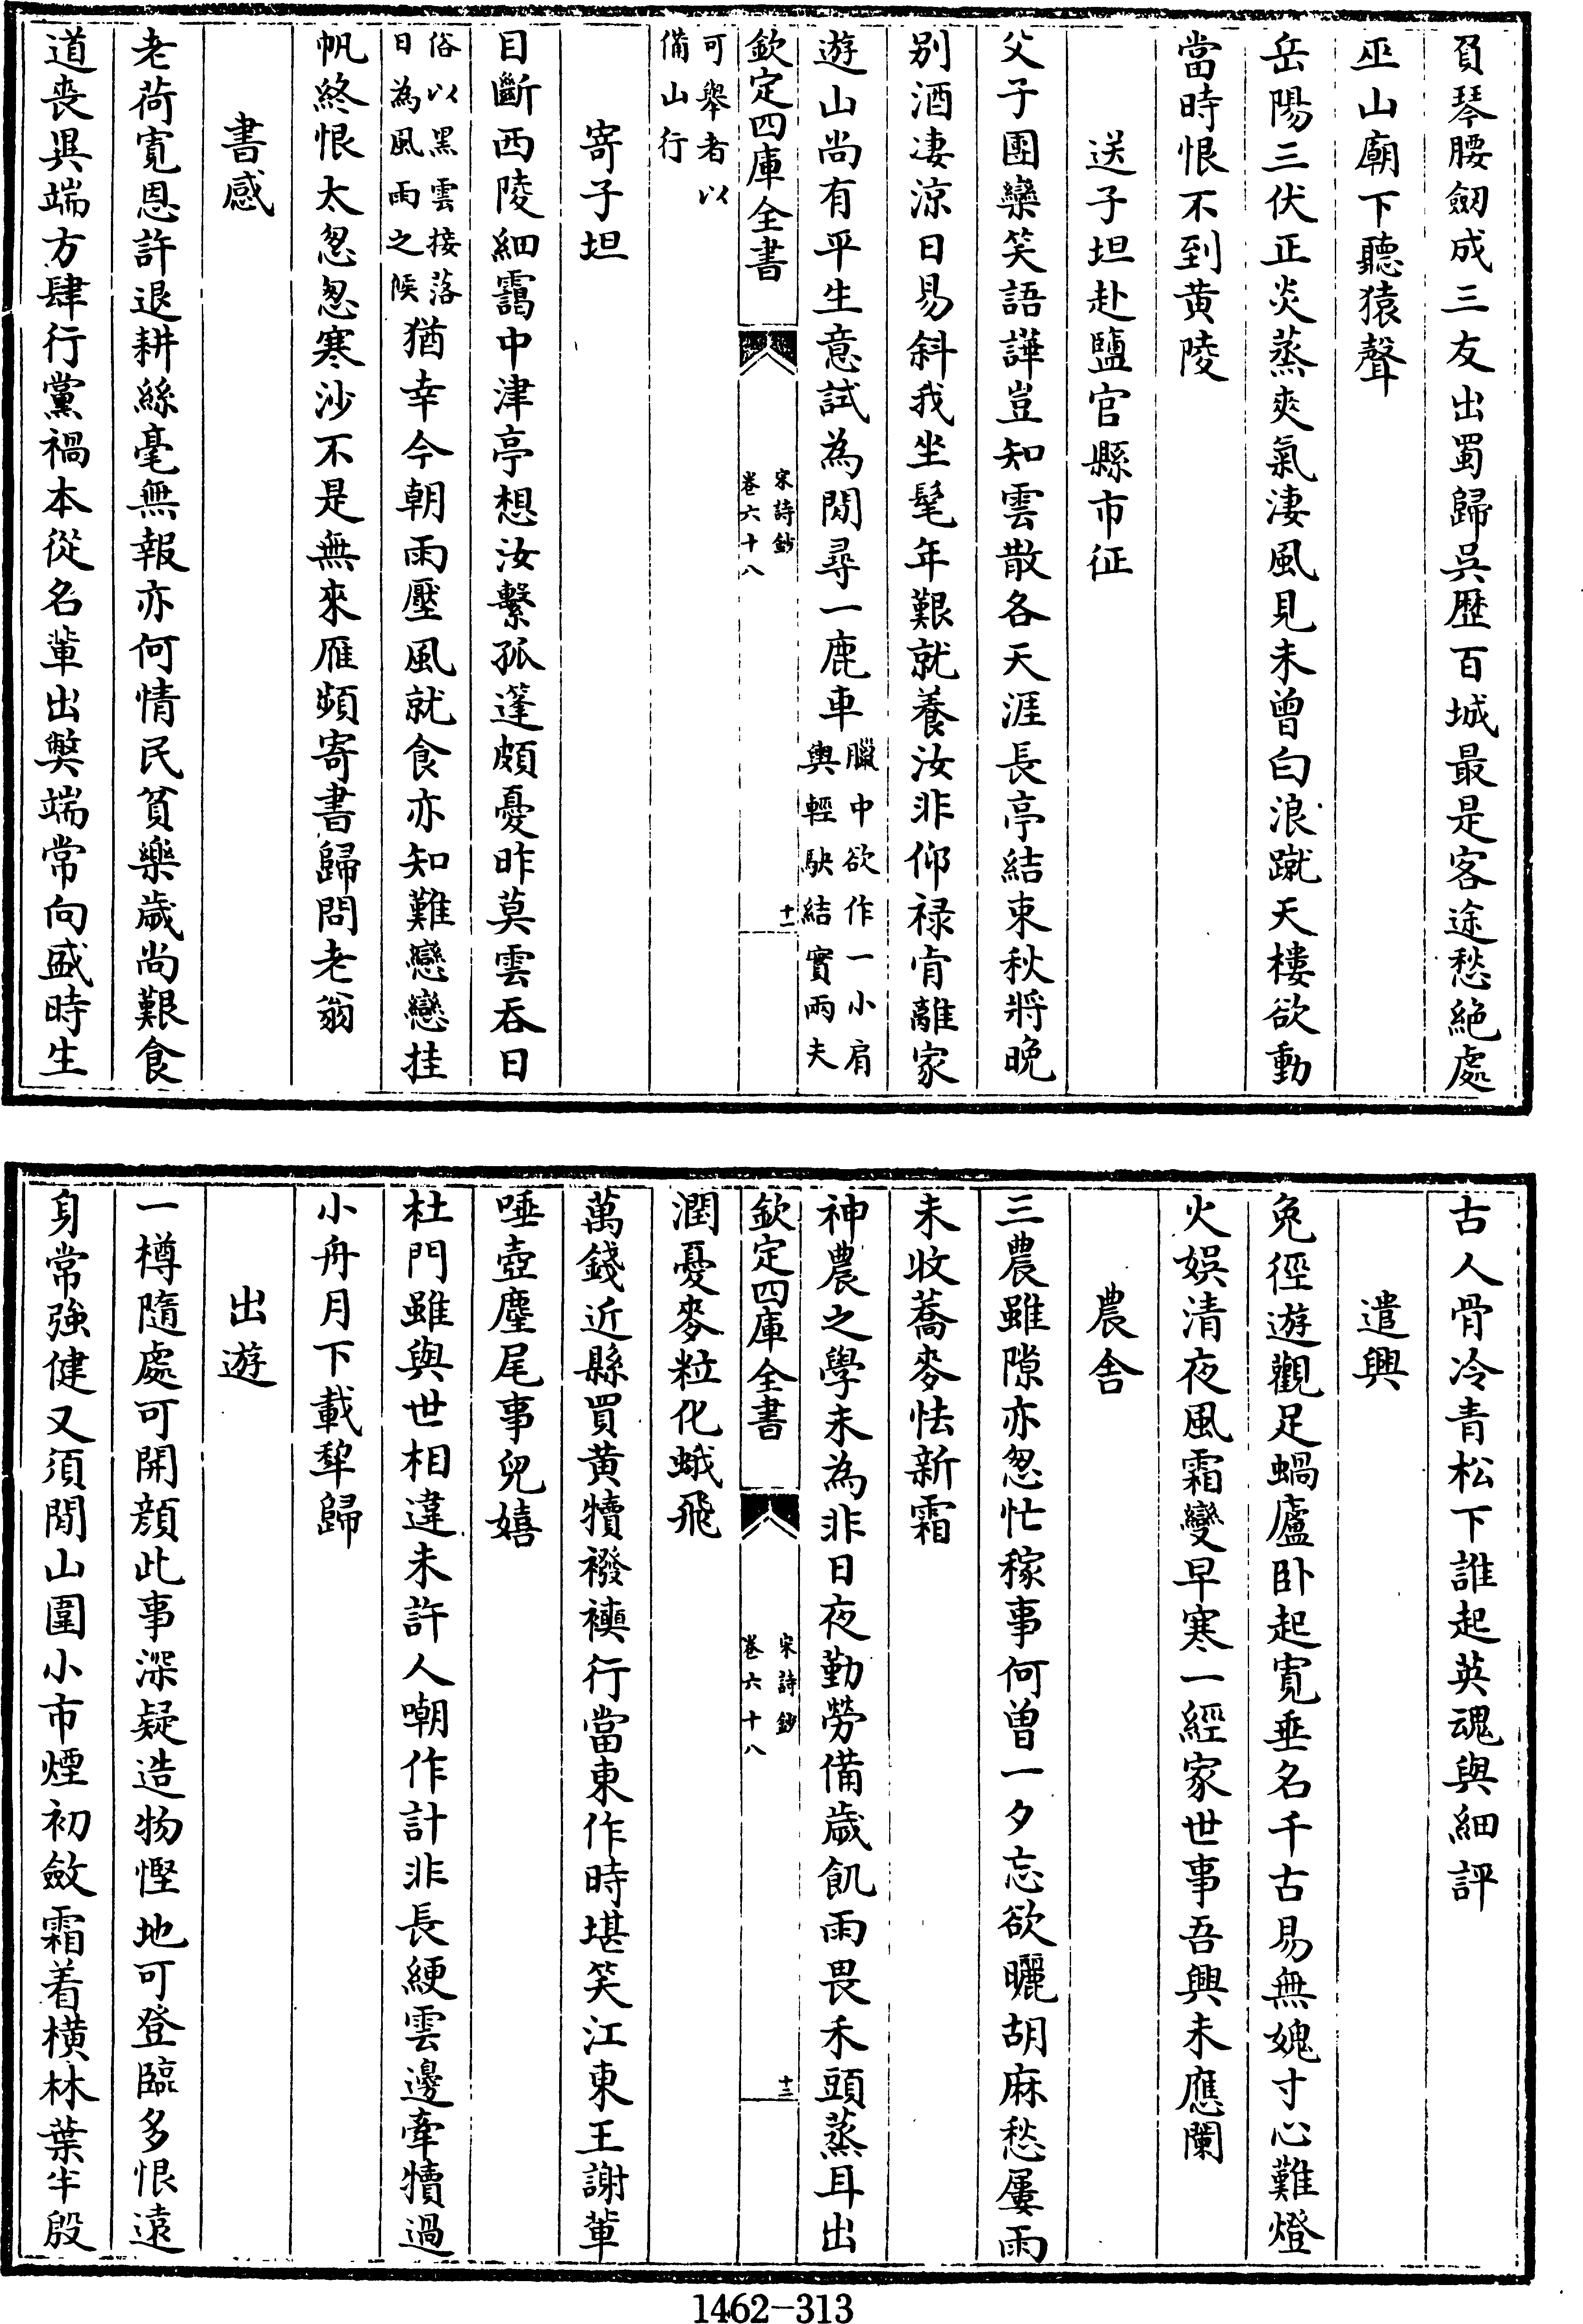 負琴腰劒成三友出蜀歸吳歷百城最是客途愁絶處
巫山廟下聽猿聲
岳陽三伏正炎蒸爽氣淒風見未曾白浪蹴天樓欲動
當時恨不到黄陵
送子坦赴鹽官縣市征
父子團欒笑語譁豈知雲散各天涯長亭結束秋將晚
别酒凄涼日易斜我坐髦年艱就養汝非仰禄肯離家
遊山尚有平生意試為閒尋一鹿車臘中欲作一小肩
輿輕駃結實兩夫
欽定四庫全書
宋詩鈔
卷六十八
十二
可舉者以
備山行
寄子坦
目斷西陵細靄中津亭想汝繫孤篷頗憂昨莫雲吞日
俗以黑雲接落
日為風雨之候猶幸今朝雨壓風就食亦知難戀戀挂
帆終恨太怱怱寒沙不是無來雁頻寄書歸問老翁
書感
老荷寛恩許退耕絲毫無報亦何情民貧樂歲尚艱食
道喪異端方肆行黨禍本從名輩出弊端常向盛時生
古人骨冷青松下誰起英魂與細評
遣興
兔徑遊觀足蝸廬卧起寛垂名千古易無媿寸心難燈
火娯清夜風霜變早寒一經家世事吾興未應闌
農舍
三農雖隙亦怱忙稼事何曾一夕忘欲曬胡麻愁屢雨
未收蕎麥怯新霜
神農之學未為非日夜勤勞備歲飢雨畏禾頭蒸耳出
欽定四庫全書
宋詩鈔
卷六十八
十三
潤憂麥粒化蛾飛
萬錢近縣買黄犢襏襫行當東作時堪笑江東王謝輩
唾壺麈尾事兒嬉
杜門雖與世相違未許人嘲作計非長綆雲邊牽犢過
小舟月下載犂歸
出遊
一樽隨處可開顔此事深疑造物慳地可登臨多恨遠
身常強健又須閒山圍小市煙初斂霜着横林葉半殷
1462-313